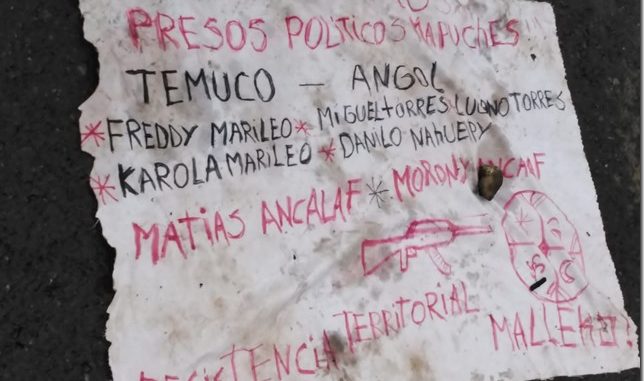 PRESOS POLÍTICOS MAPUCHES!!
TEMUCO — ANGOL
*FREDDY MARILEO* MIGUEL TORRES LUCIANO TORRES
*KAROLA MARILEO * DANILO NAHUEPY
MATIAS ANCALAF * MORONY ANCALAF
RESISTENCIA TERRITORIAL
MALLEKO!